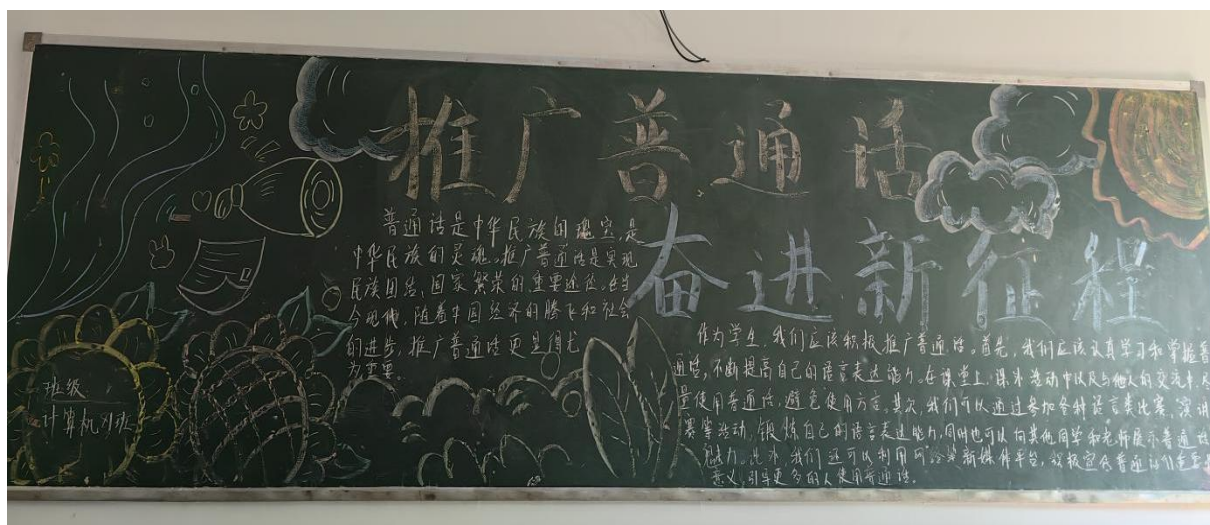 推广普通话
奋进新征程
普通话是中华民族的瑰宝,是
中华民族的灵魂。推广普通话是实现
民族团结、国家繁荣的重要途径。在当
今现代,随着中国经济的腾飞和社会
的进步,推广普通话更显得尤
为重要
作为学生,我们应该积极推广普通话。首先,我们应该认真学习和掌握普
通话,不断提高自己的语言表达能力。在课堂上、课外活动中以及与他人的交流中,尽
量使用普通话,避免使用方言。其次,我们可以通过参加各种语言类比赛、演讲
赛等活动,锻炼自己的语言表达能力,同时也可以向其他同学和老师展示普通话
魅力。此外,我们还可以利用网络等新媒体平台,积极宣传普通话的重要
意义,引导更多的人使用普通话。
班级
计算机 班